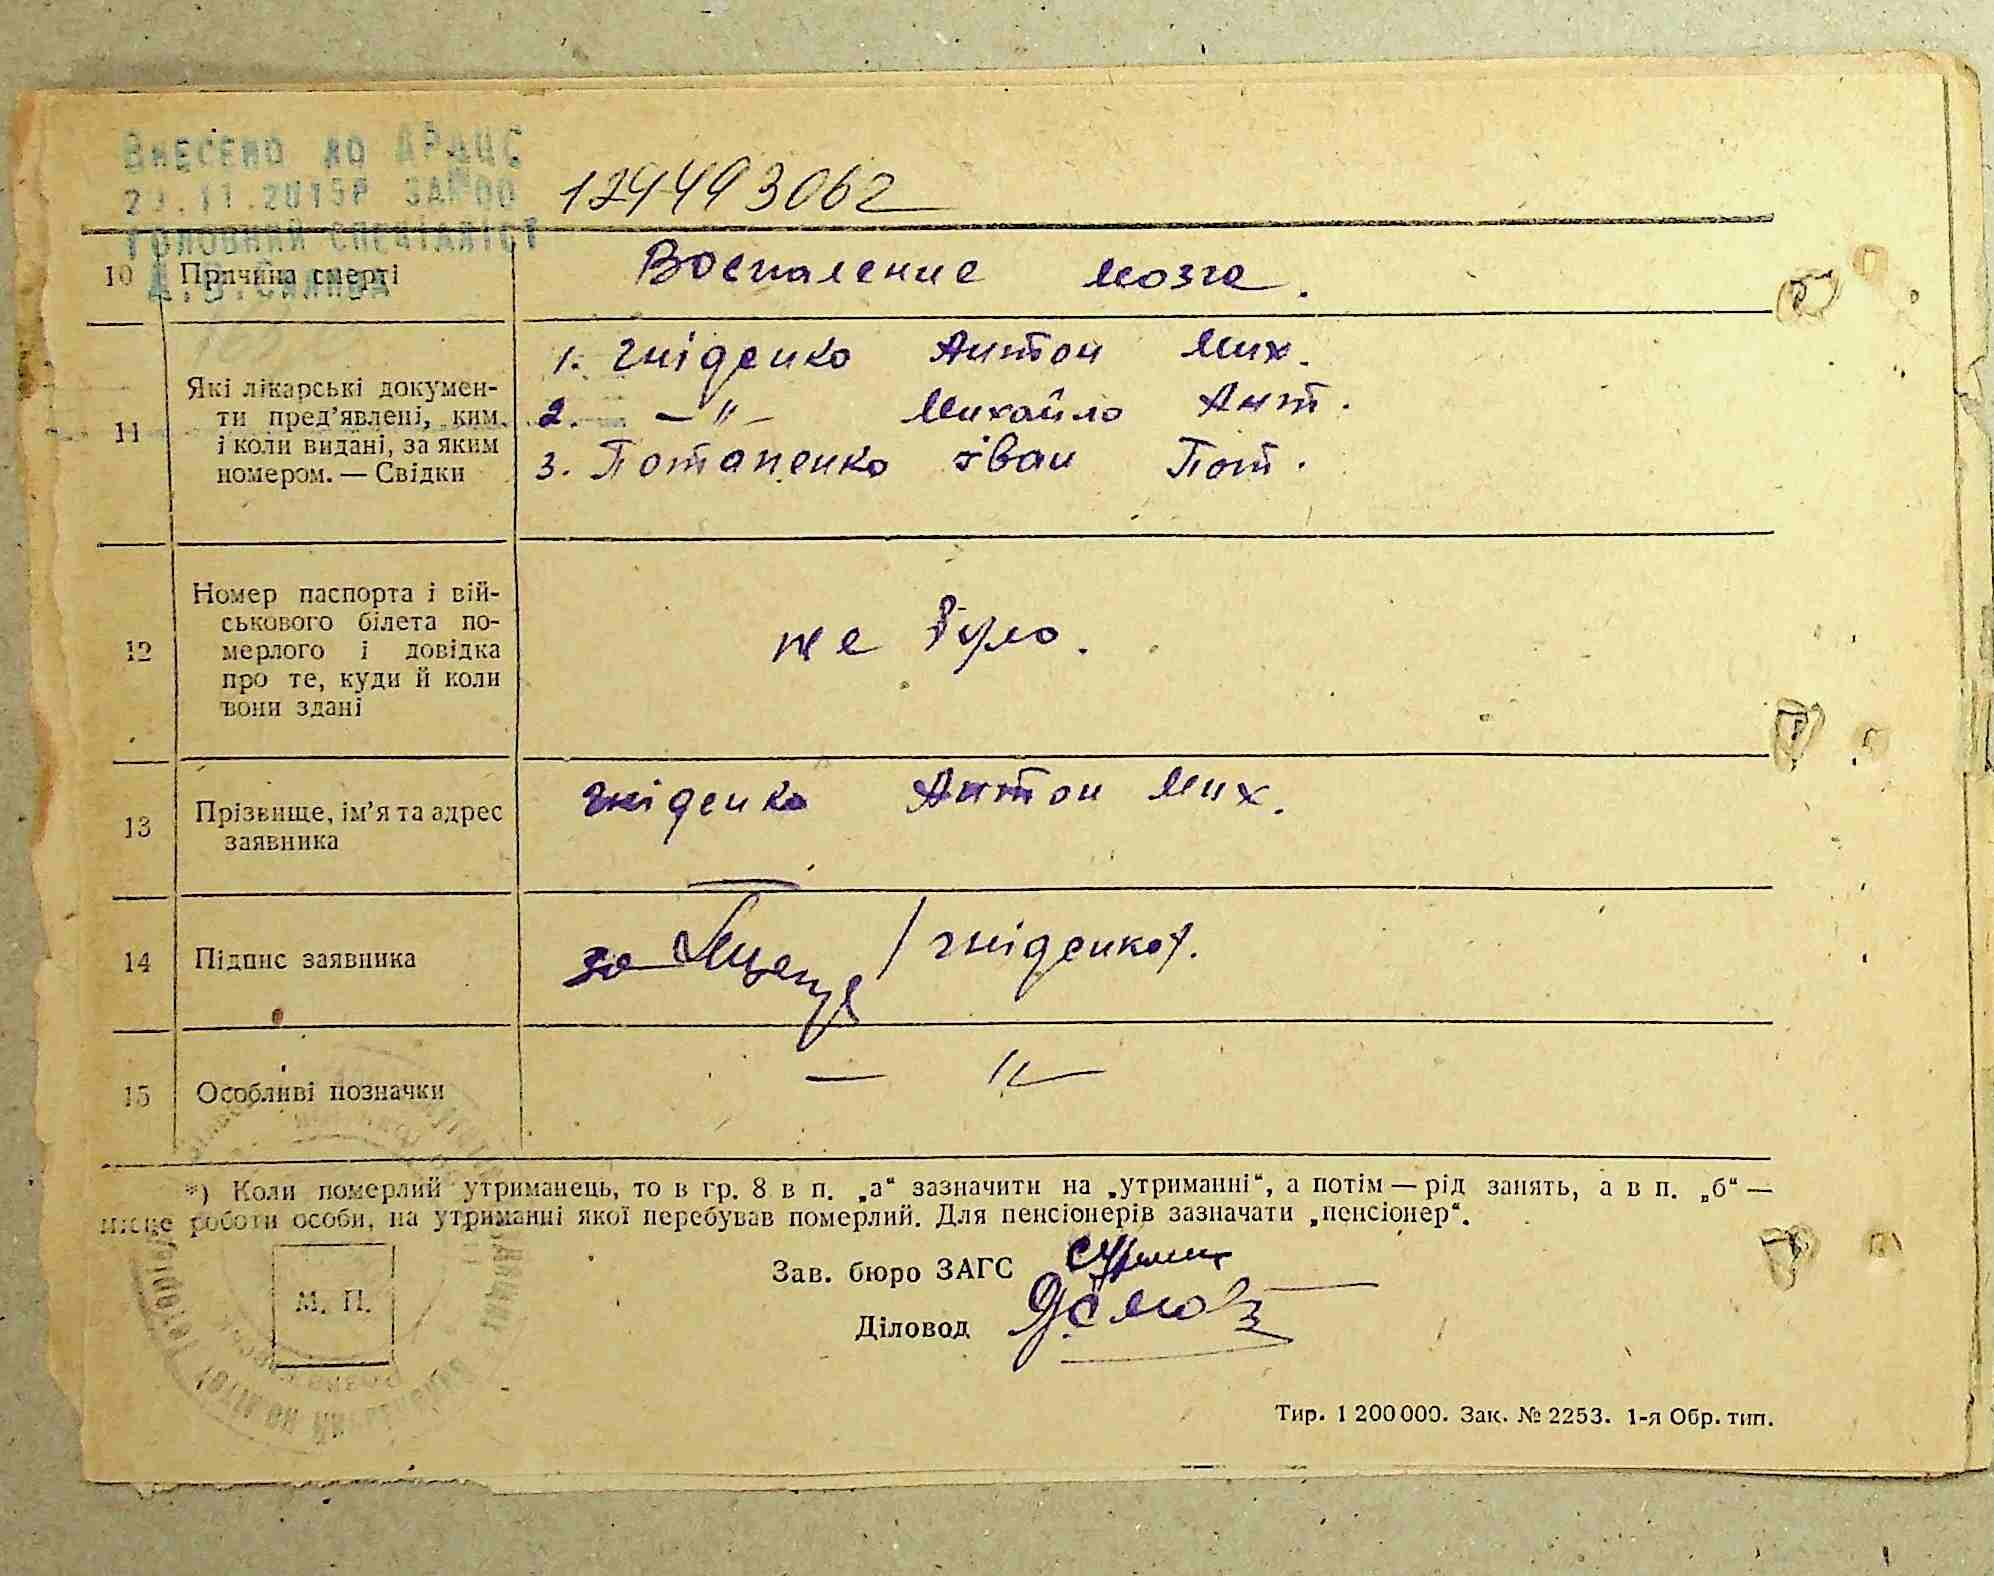 Внесено до ДРАЦС
ЗА №00
124493062
головний спеціаліст
10 Причина смерті Воспаление мозга.
11 Які лікарські докумен-
ти пред’явлені, ким
і коли видані, за яким
номером. — Свідки
1. Гніденко Антон Мих.
2. — " — Михайло Ант.
3. Потапенко Іван Пот.
12 Номер паспорта і вій-
ськового білета по-
мерлого і довідка
про те, куди й коли
вони здані
не було.
13 Прізвище, ім’я та адрес
заявника
Гніденко Антон Мих.
14 Підпис заявника за /Гніденко/.
15 Особливі позначки — " —
*) Коли померлий утриманець, то в гр. 8 в п. „а“ зазначити на „утриманні“, а потім — рід занять, а в п. „б“ —
місце роботи особи, на утриманні якої перебував померлий. Для пенсіонерів зазначати „пенсіонер“.
Зав. бюро ЗАГС
М. П.
Діловод
Тир. 1 200 000. Зак. № 2253. 1-я Обр. тип.